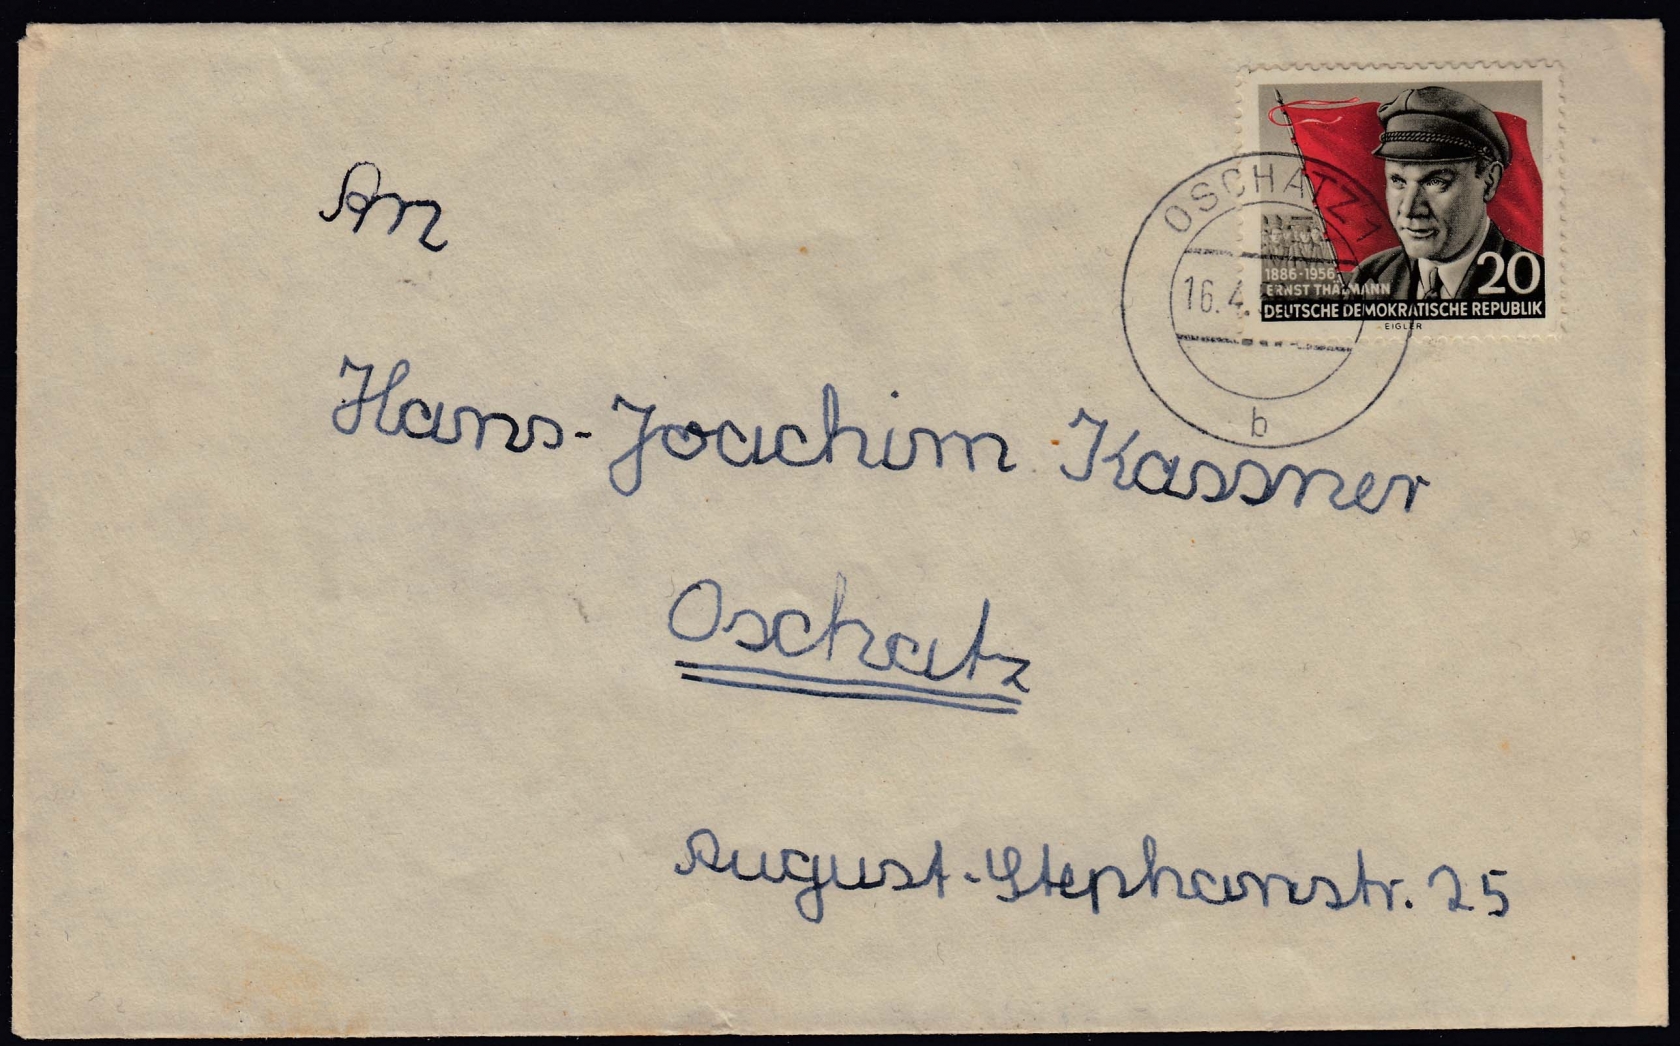 OSCHATZ 1
16.4.
b
1886-1956
ERNST THÄLMANN
20
DEUTSCHE DEMOKRATISCHE REPUBLIK
EIGLER
An
Hans-Joachim Kassner
Oschatz
August-Stephanstr. 25